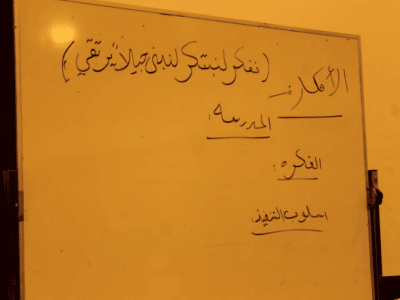 (نفكر لنبتكر لنبني جيلاً يرتقي)
الأفكار
المدرسه:
الفكره:
اسلوب التنفيذ: